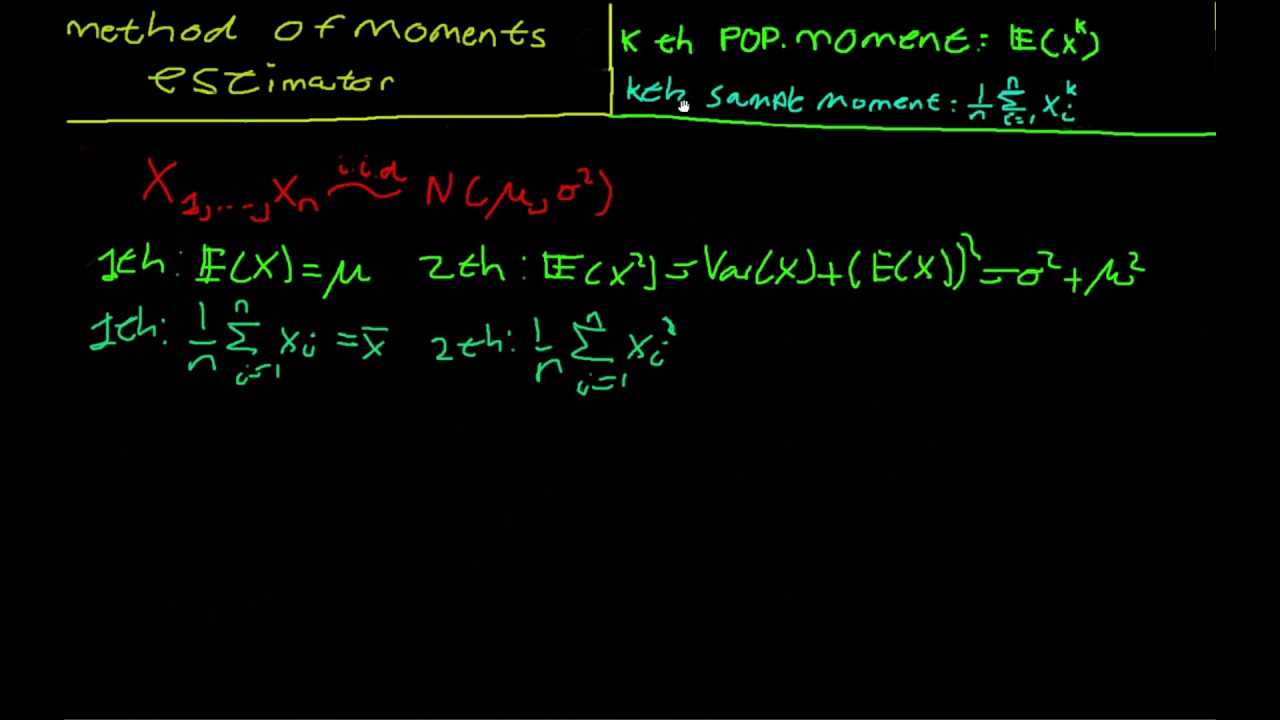 method of moments
estimator
K th POP. moment: 𝔼(X^k)
kth sample moment: 1/n Σ_{i=1}^n X_i^k
X_1,...,X_n i.i.d ~ N(μ, σ²)
1th: 𝔼(X) = μ 2th: 𝔼(X²] = Var(X) + (E(X))² = σ² + μ²
1th: 1/n Σ_{i=1}^n X_i = x̄ 2th: 1/n Σ_{i=1}^n X_i²